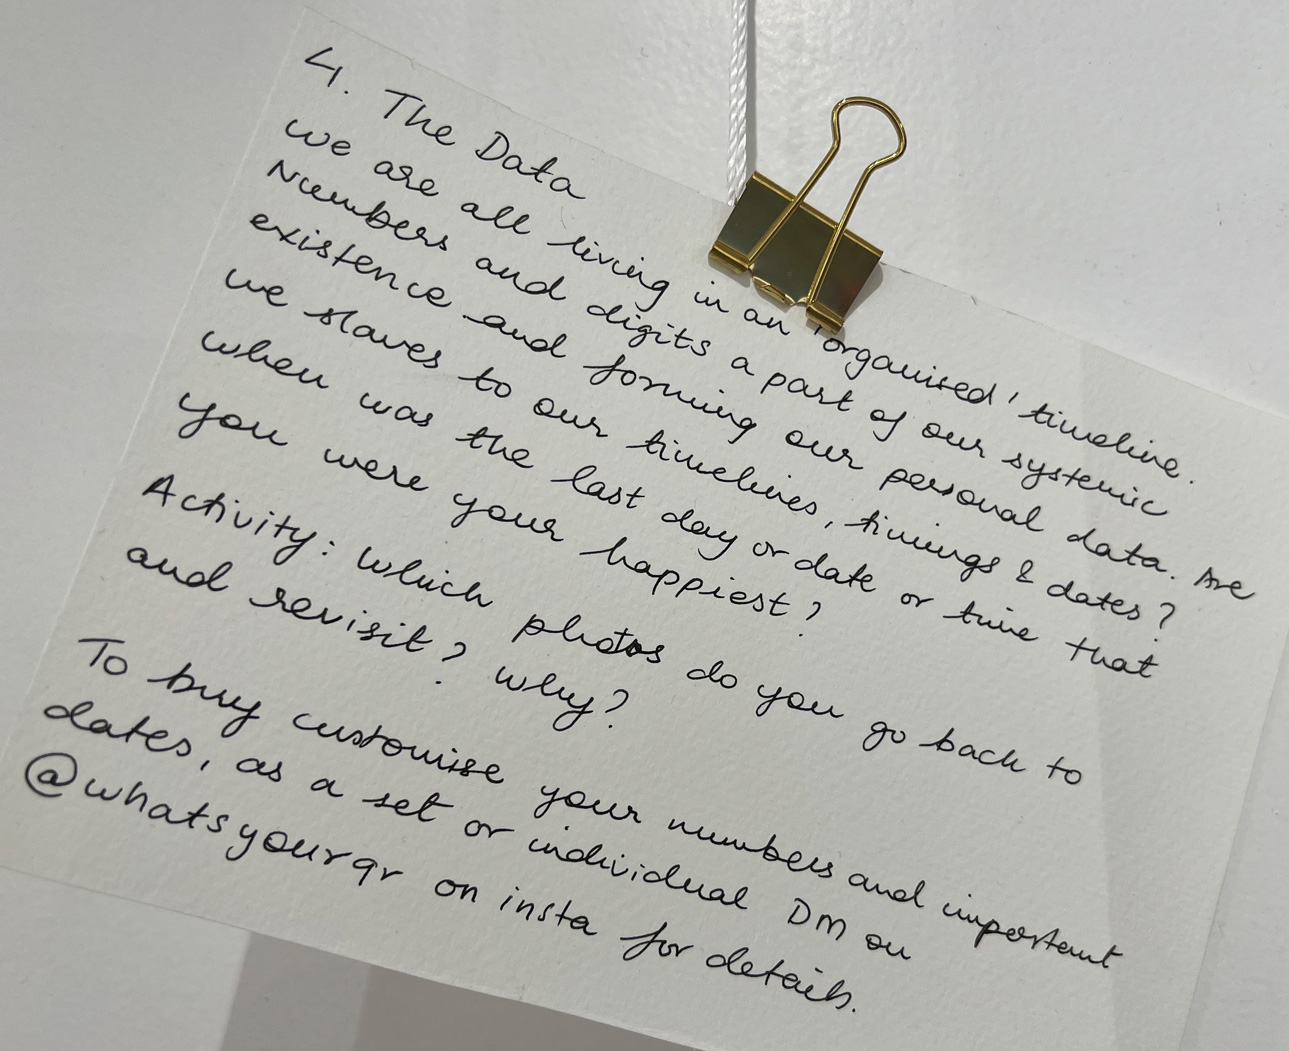 4. The Data
we are all living in an 'organised' timeline.
Numbers and digits a part of our systemic
existence and forming our personal data. Are
we slaves to our timelines, timings & dates?
when was the last day or date or time that
you were your happiest?
Activity: which photos do you go back to
and revisit? why?
To buy customise your numbers and important
dates, as a set or individual DM on
@whatsyourqr on insta for details.